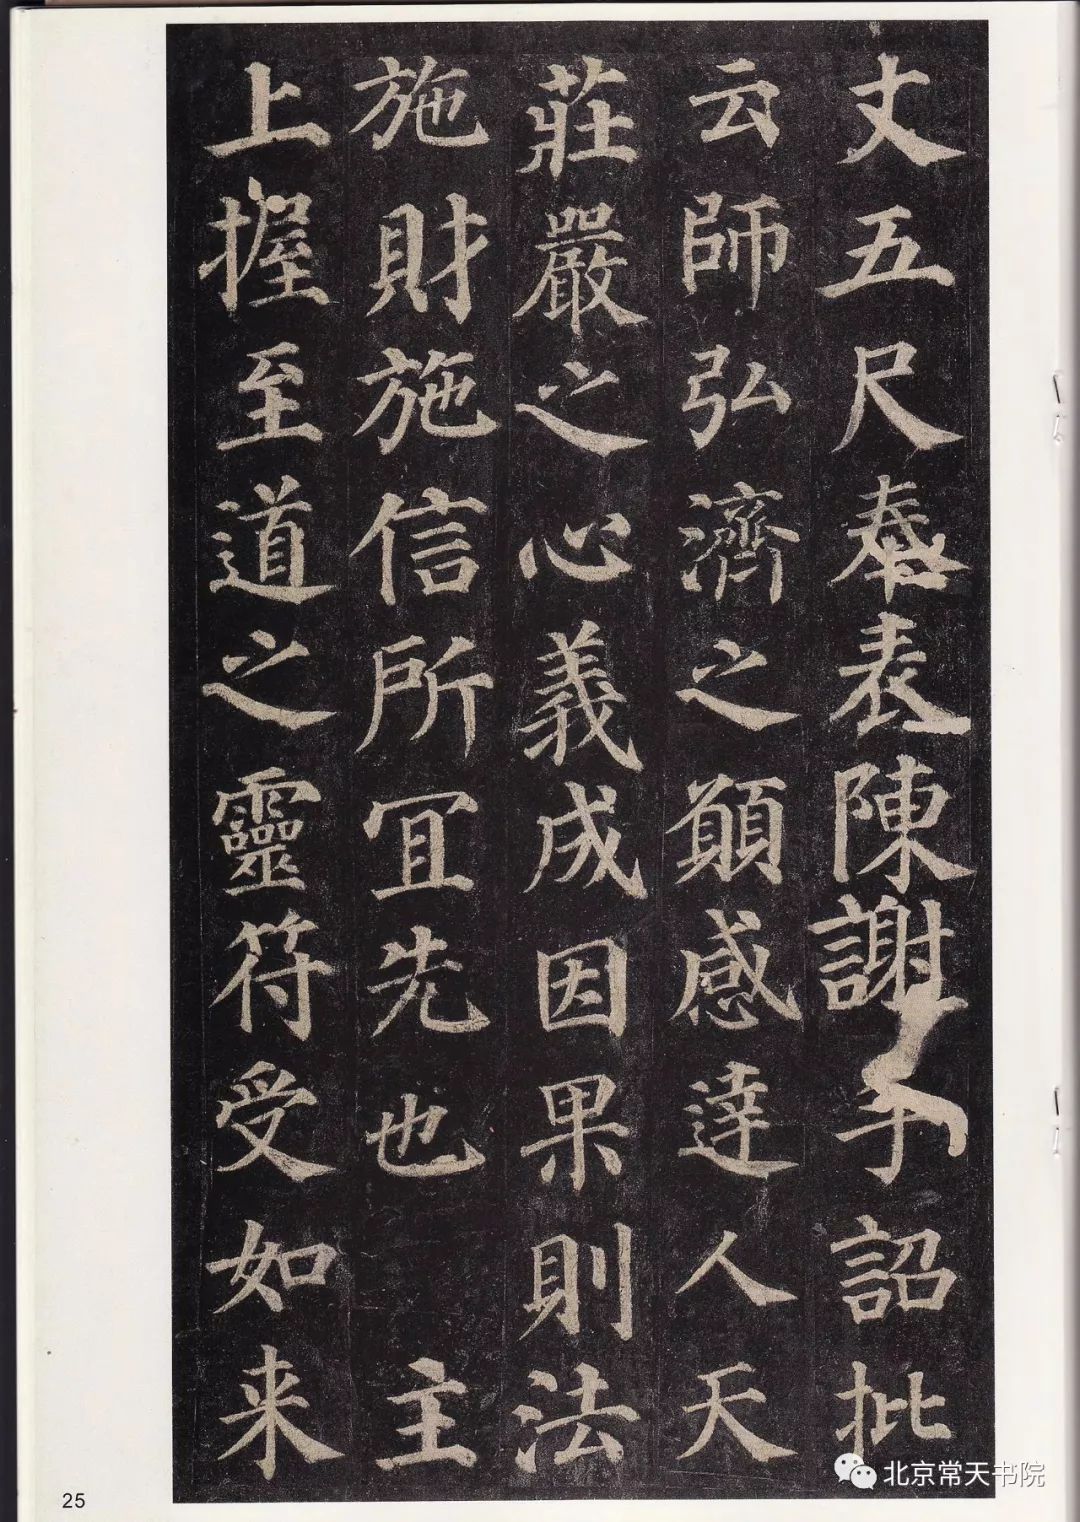 丈五尺奉表陳謝手詔批
云師弘濟之願感達人天
莊嚴之心義成因果則法
施財施信所冝先也 主
上握至道之靈符受如来
25
北京常天书院